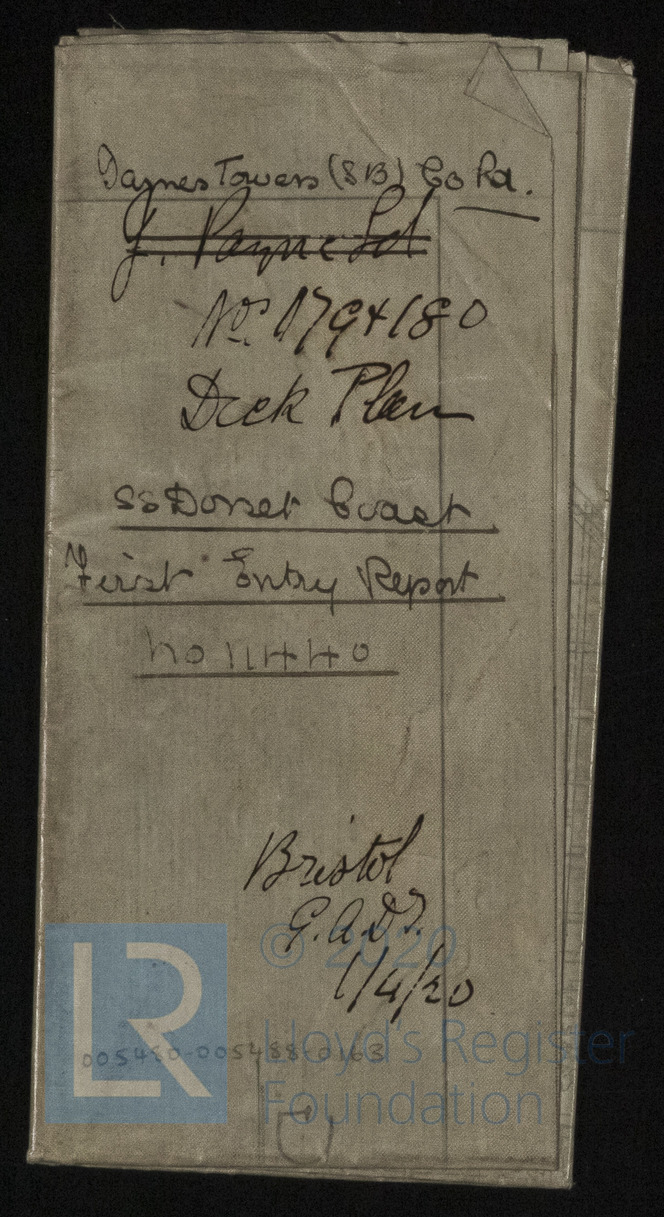 Daynes Towers (SB) Co Ld.
J. Payne Ld
No. 179 & 180
Deck Plan
SS Dorset Coast
First Entry Report
No 11440
Bristol
G.A.D.
1/4/20
LR
© 2020
Lloyd's Register
Foundation
005480-005488-0163